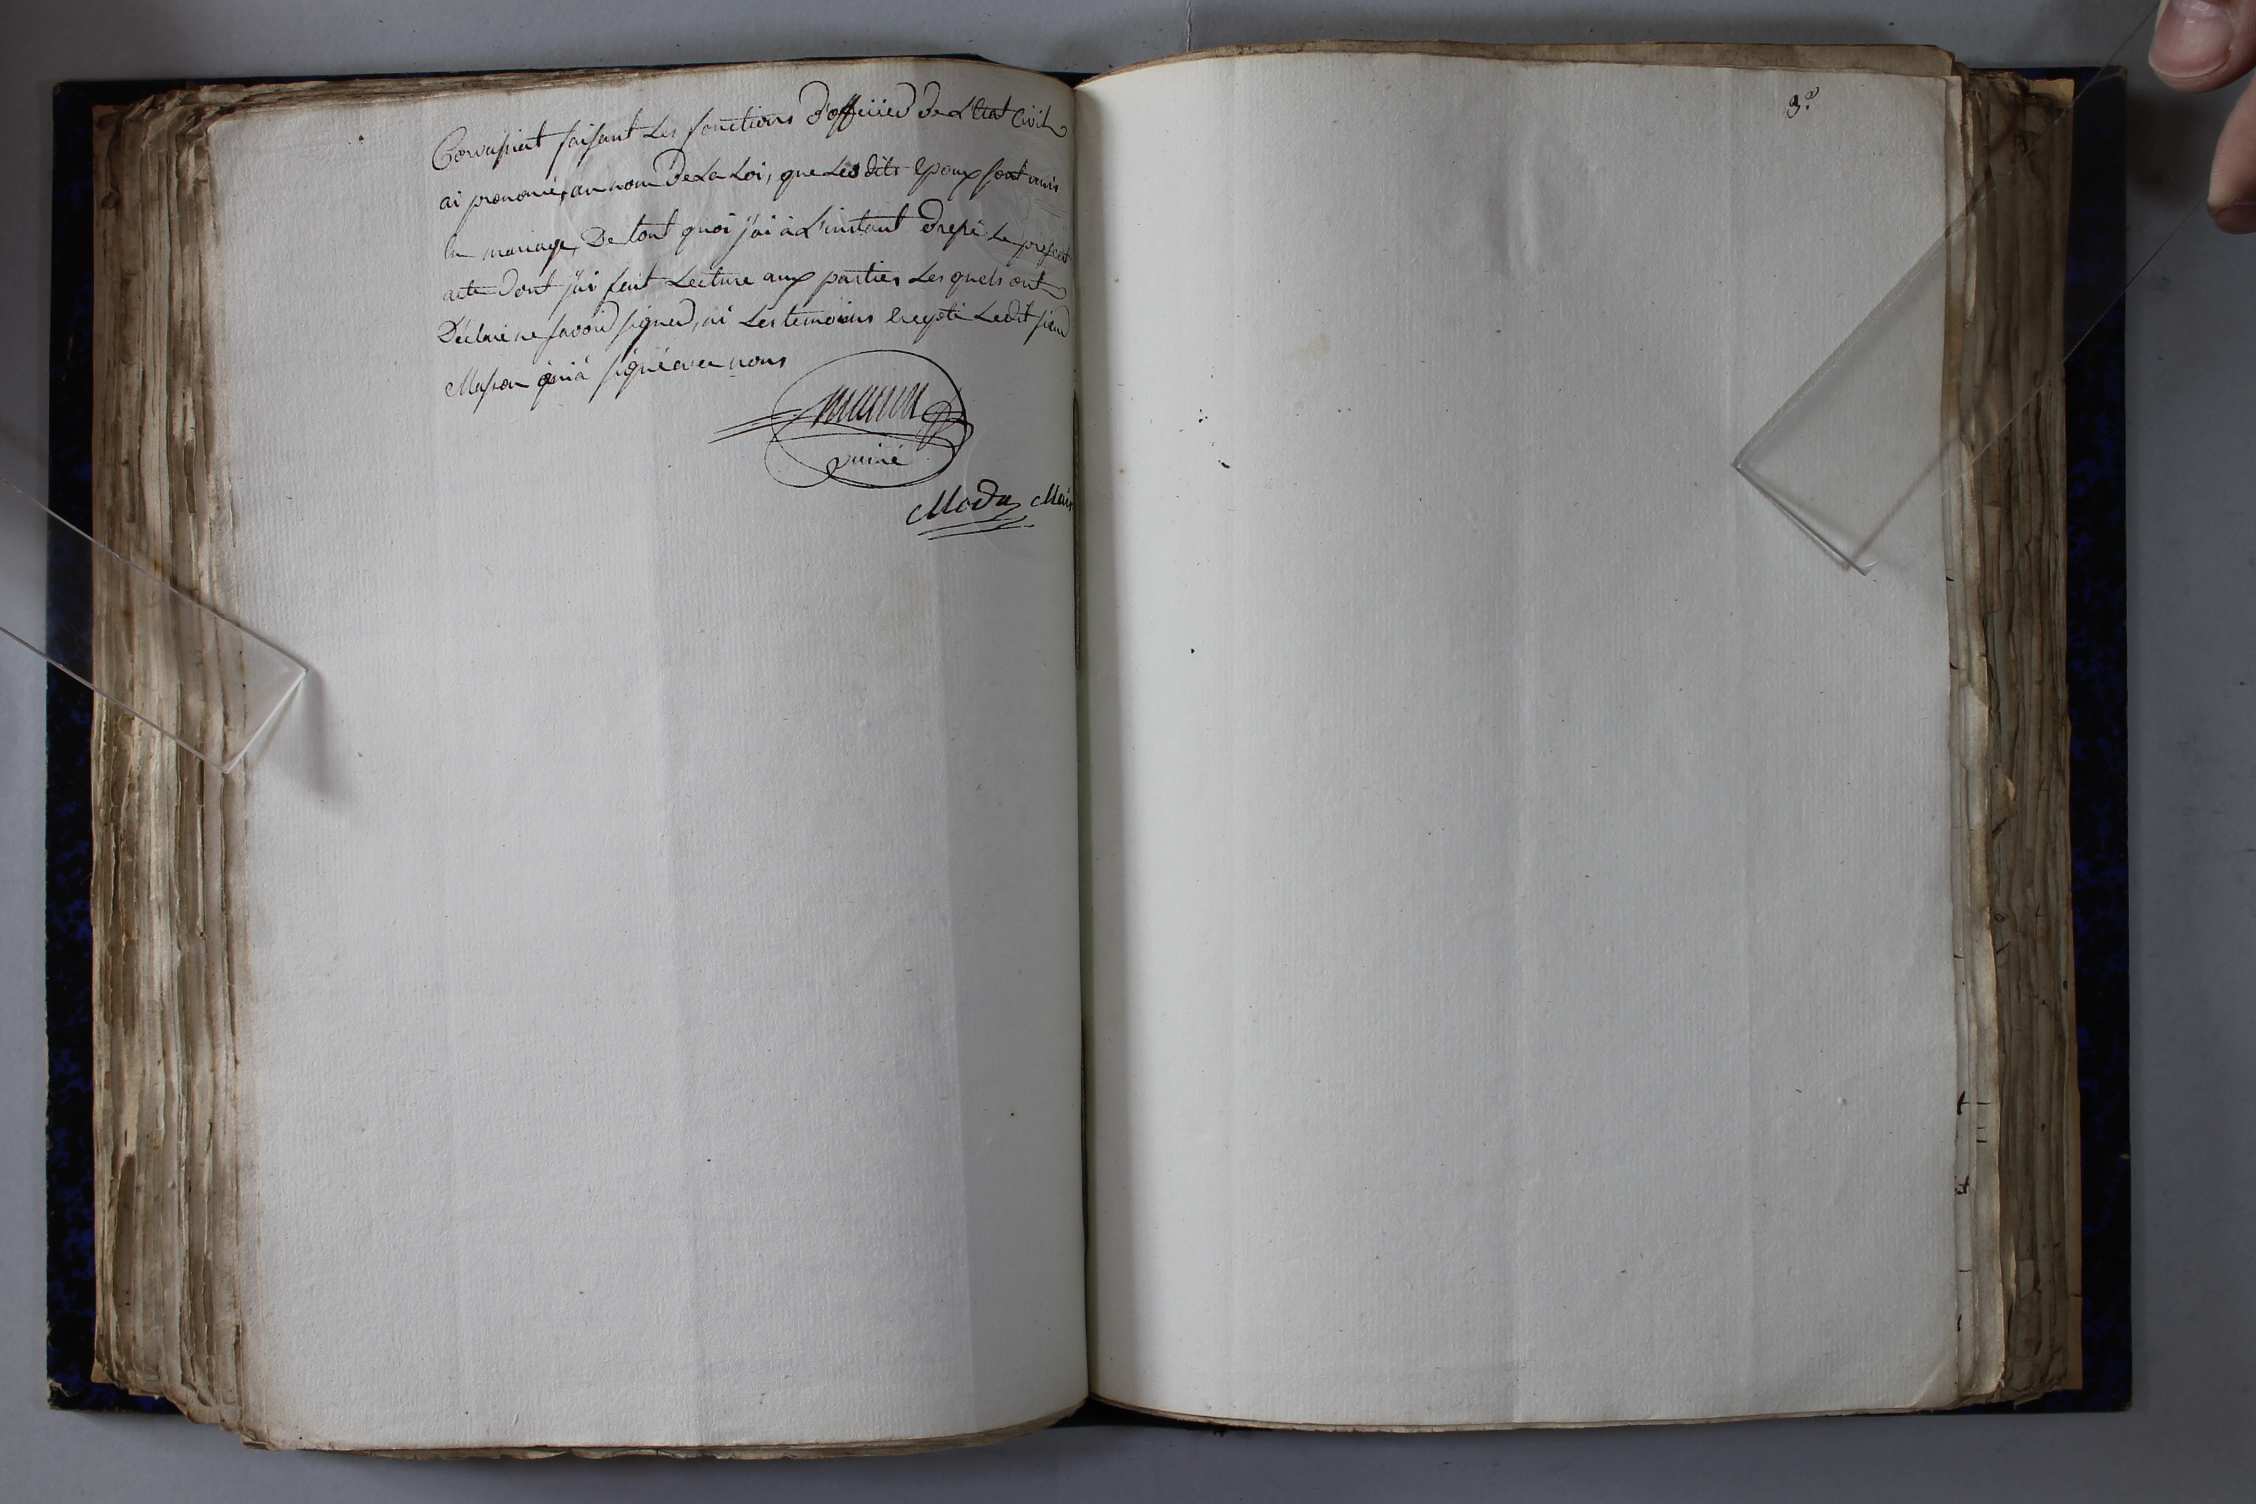 faisant Les fonctions D'officier De L'Etat Civil
ai prononcé, au nom De La Loi, que Les dits Epoux sont unis
En mariage, De tout quoi j'ai à L'instant Dressé Le présent
acte Dont j'ai fait Lecture aux parties Les quels ont
Déclaré ne savoir signer, ni Les temoins Excepté Ledit sieur
Masson qui à signé avec nous
Mada Maire
3.e